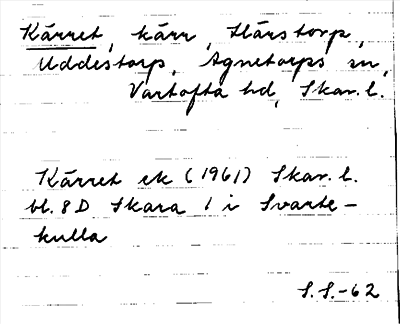 Kärret, kärr, Härstorp,
Uddestorp, Agnetorps sn,
Vartofta hd, Skar. l.
Kärret ek (1961) Skar. l.
bl. 8D Skara 1 i Svarte-
kulla
S.S.-62